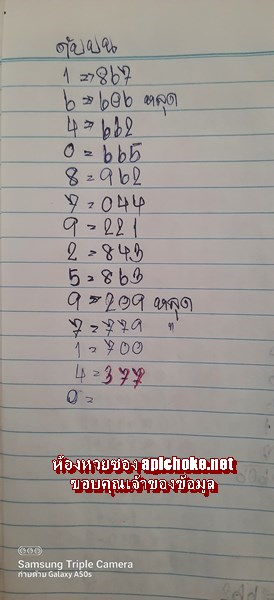 ดับบน
1 => 867
6 = 606 หลุด
4 = 662
0 = 665
8 = 962
7 = 044
9 = 221
2 = 843
5 = 863
9 = 209 หลุด
7 = 779 "
1 = 700
4 = 377
0 =
ห้องหวยซอง aplchoke.net
ขอบคุณเจ้าของข้อมูล
Samsung Triple Camera
ถ่ายด้วย Galaxy A50s